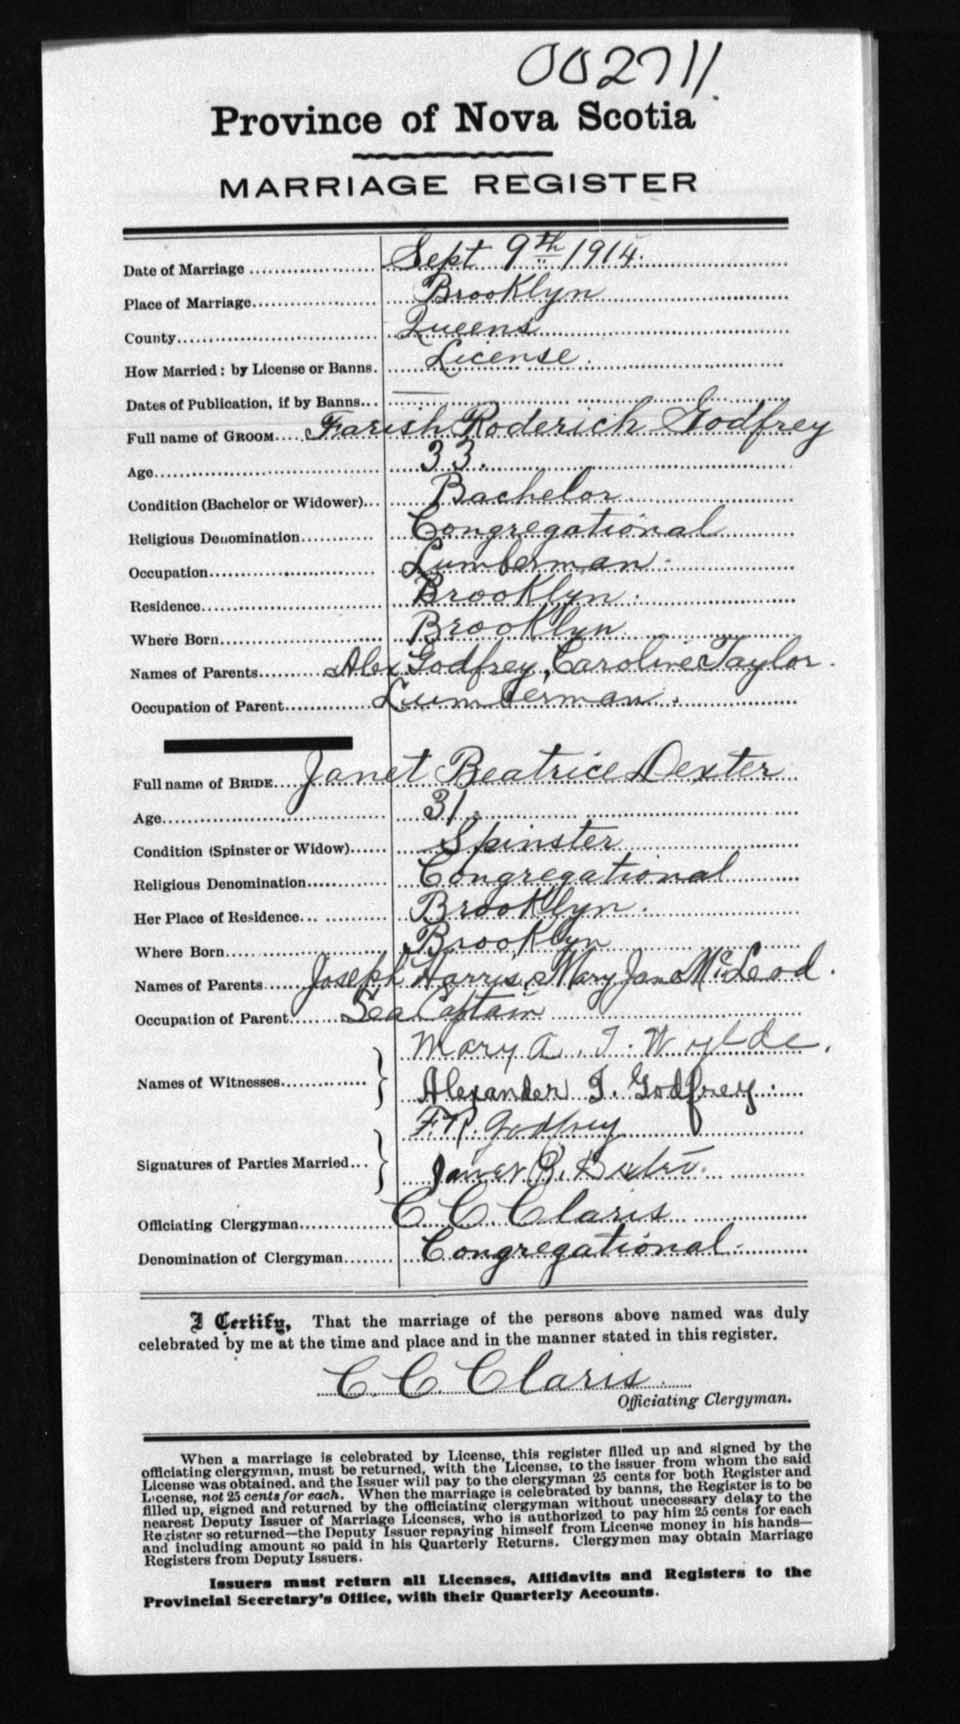 002711
Province of Nova Scotia
MARRIAGE REGISTER
Date of Marriage Sept 9th 1914.
Place of Marriage Brooklyn
County Queens
How Married: by License or Banns. License.
Dates of Publication, if by Banns —
Full name of GROOM Farish Roderich Godfrey
Age 33.
Condition (Bachelor or Widower) Bachelor
Religious Denomination Congregational
Occupation Lumberman.
Residence Brooklyn.
Where Born Brooklyn.
Names of Parents Alex Godfrey, Caroline Taylor.
Occupation of Parent Lumberman.
Full name of BRIDE Janet Beatrice Dexter
Age 31.
Condition (Spinster or Widow) Spinster
Religious Denomination Congregational
Her Place of Residence Brooklyn.
Where Born Brooklyn
Names of Parents Joseph Harris, Mary Jane McLeod.
Occupation of Parent Sea Captain
Mary A. T. Wylde.
Names of Witnesses } Alexander T. Godfrey.
F. R. Godfrey
Signatures of Parties Married } Janet B. Dexter.
Officiating Clergyman C C Claris
Denomination of Clergyman Congregational.
I Certify, That the marriage of the persons above named was duly
celebrated by me at the time and place and in the manner stated in this register.
C. C. Claris.
Officiating Clergyman.
When a marriage is celebrated by License, this register filled up and signed by the
officiating clergyman, must be returned, with the License, to the issuer from whom the said
License was obtained, and the Issuer will pay to the clergyman 25 cents for both Register and
License, not 25 cents for each. When the marriage is celebrated by banns, the Register is to be
filled up, signed and returned by the officiating clergyman without unecessary delay to the
nearest Deputy Issuer of Marriage Licenses, who is authorized to pay him 25 cents for each
Register so returned—the Deputy Issuer repaying himself from License money in his hands—
and including amount so paid in his Quarterly Returns. Clergymen may obtain Marriage
Registers from Deputy Issuers.
Issuers must return all Licenses, Affidavits and Registers to the
Provincial Secretary's Office, with their Quarterly Accounts.